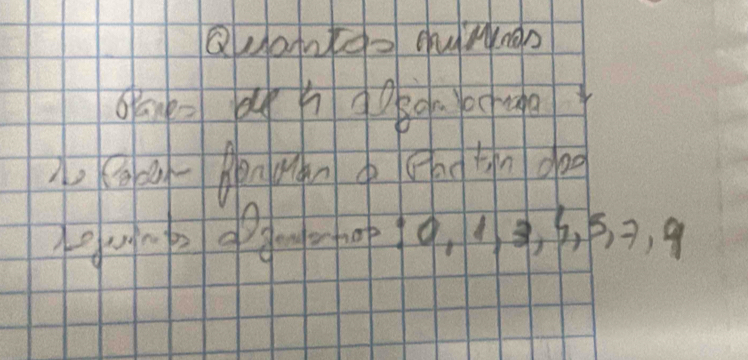 Quantos números
Pares de 4 algarismos
se Poder formar a Partir dos
seguintes algarismos: 0, 1, 3, 4, 5, 7, 9